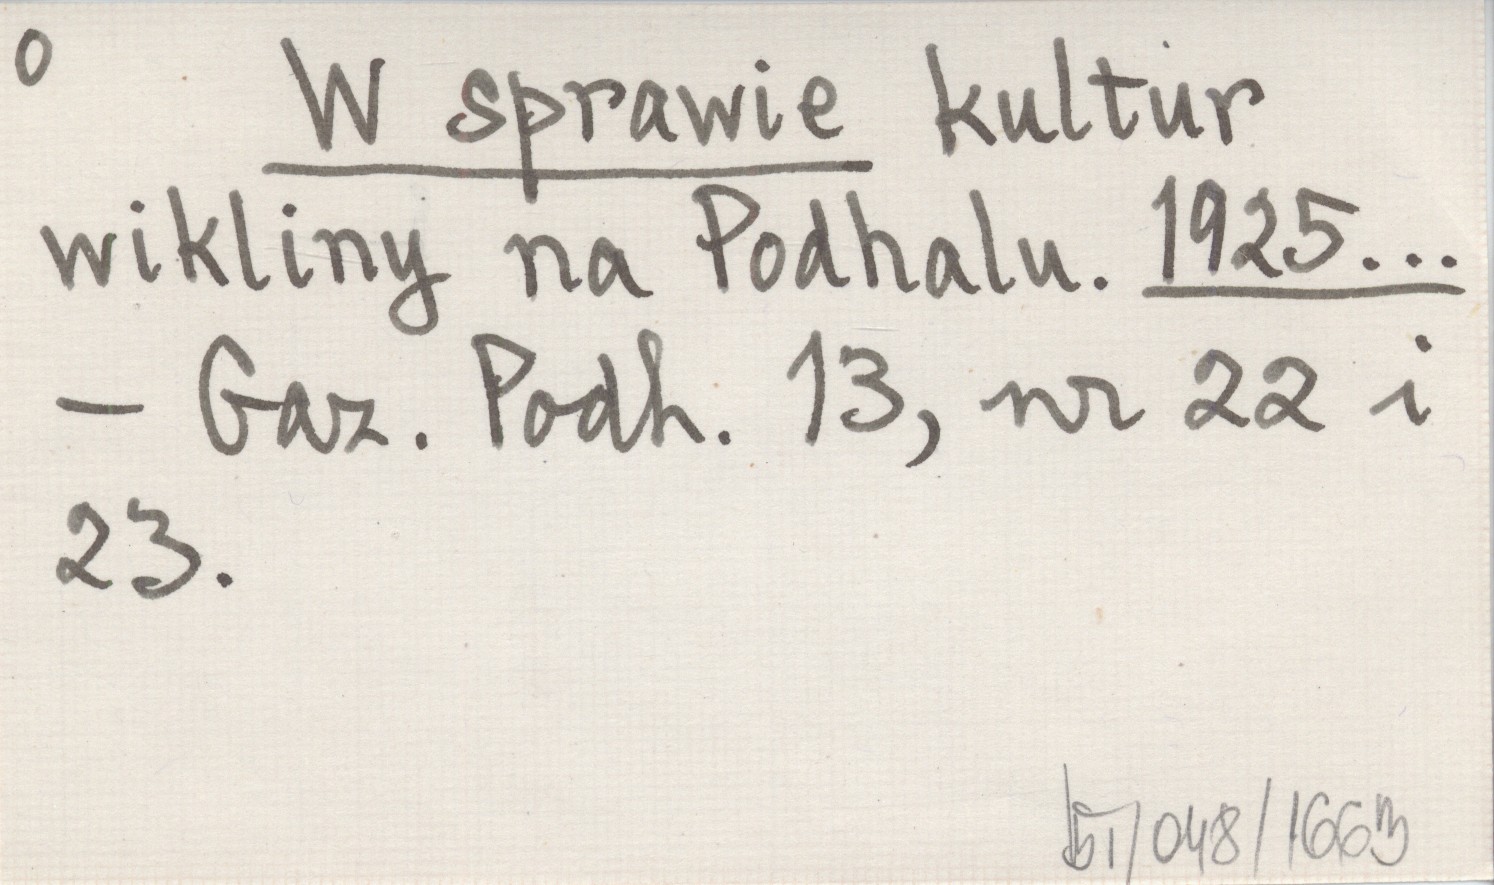 o
W sprawie kultur
wikliny na Podhalu. 1925...
– Gaz. Podh. 13, nr 22 i
23.
/048/1663